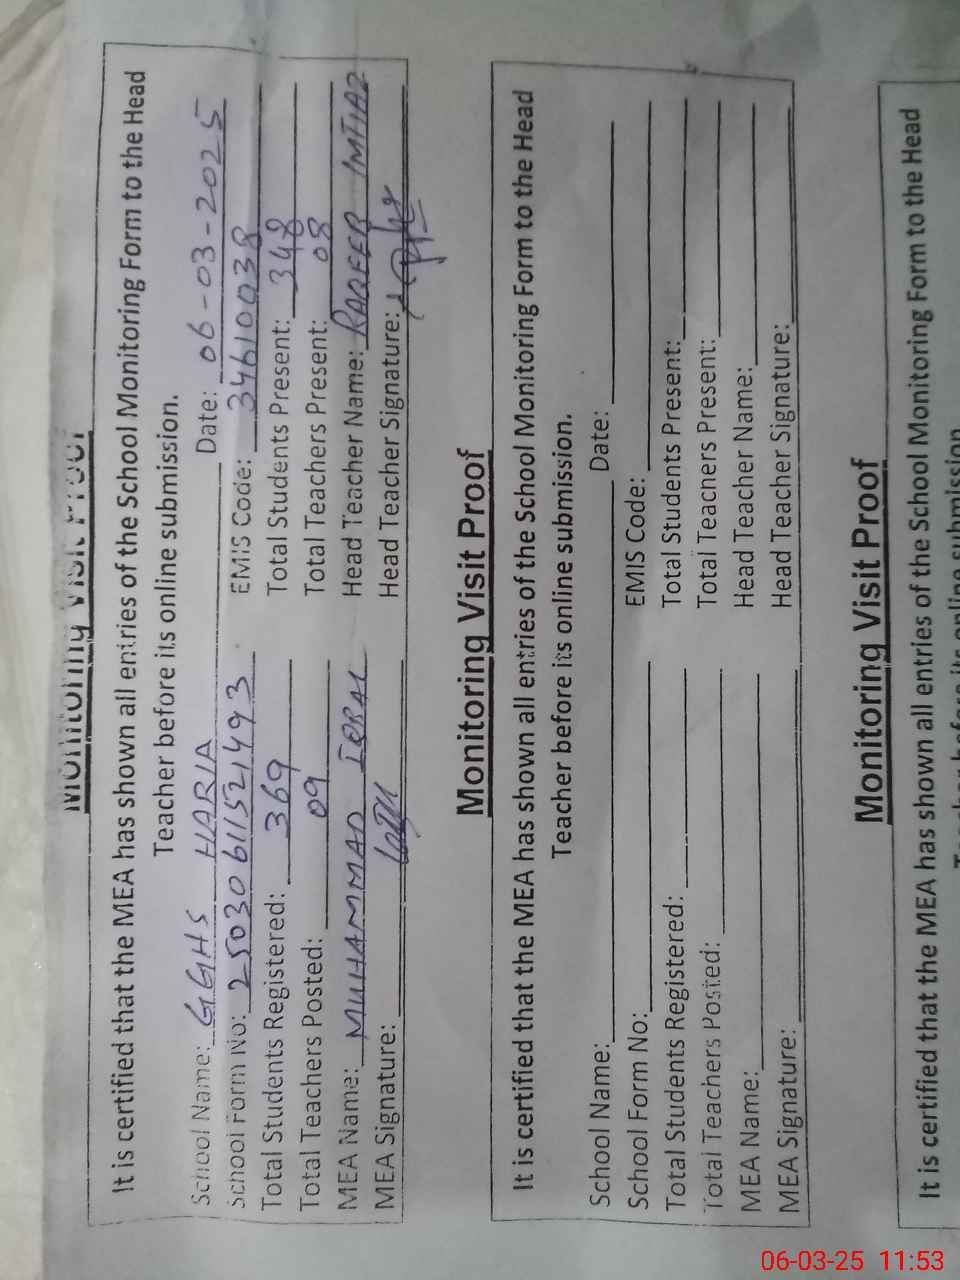 Monitoring Visit Proof
It is certified that the MEA has shown all entries of the School Monitoring Form to the Head
Teacher before its online submission.
School Name: GGHS HARIA Date: 06-03-2025
School Form No: 25030611521493 EMIS Code: 34610038
Total Students Registered: 369 Total Students Present: 348
Total Teachers Posted: 09 Total Teachers Present: 08
MEA Name: MUHAMMAD IQBAL Head Teacher Name: RAQEEB IMTIAZ
MEA Signature: Head Teacher Signature:
Monitoring Visit Proof
It is certified that the MEA has shown all entries of the School Monitoring Form to the Head
Teacher before its online submission.
School Name: Date:
School Form No: EMIS Code:
Total Students Registered: Total Students Present:
Total Teachers Posted: Total Teachers Present:
MEA Name: Head Teacher Name:
MEA Signature: Head Teacher Signature:
Monitoring Visit Proof
It is certified that the MEA has shown all entries of the School Monitoring Form to the Head
Teacher before its online submission
06-03-25 11:53